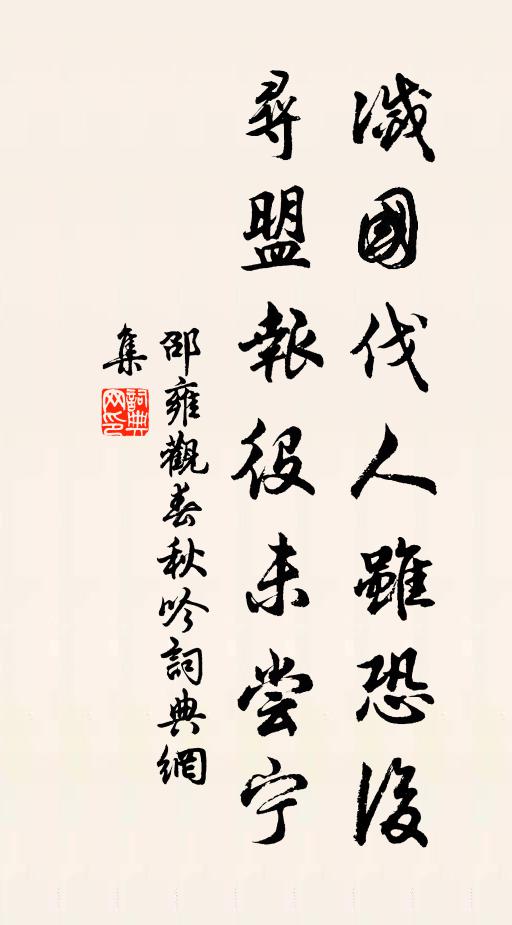 滅國伐人雖恐後
尋盟報役未尝宁
邵雍觀春秋吟詞典網
集
詞典网印